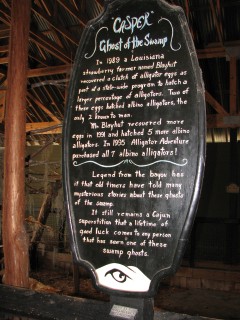 "CASPER"
Ghost of the Swamp
In 1989 a Louisiana
strawberry farmer named Blayhut
recovered a clutch of alligator eggs as
part of a state-wide program to hatch a
larger percentage of alligators. Two of
these eggs hatched albino alligators, the
only 2 known to man.
Mr. Blayhut recovered more
eggs in 1991 and hatched 5 more albino
alligators. In 1995 Alligator Adventure
purchased all 7 albino alligators!
Legend from the bayou has
it that old timers have told many
mysterious stories about these ghosts
of the swamp.
It still remains a Cajun
superstition that a lifetime of
good luck comes to any person
that has seen one of these
swamp ghosts.